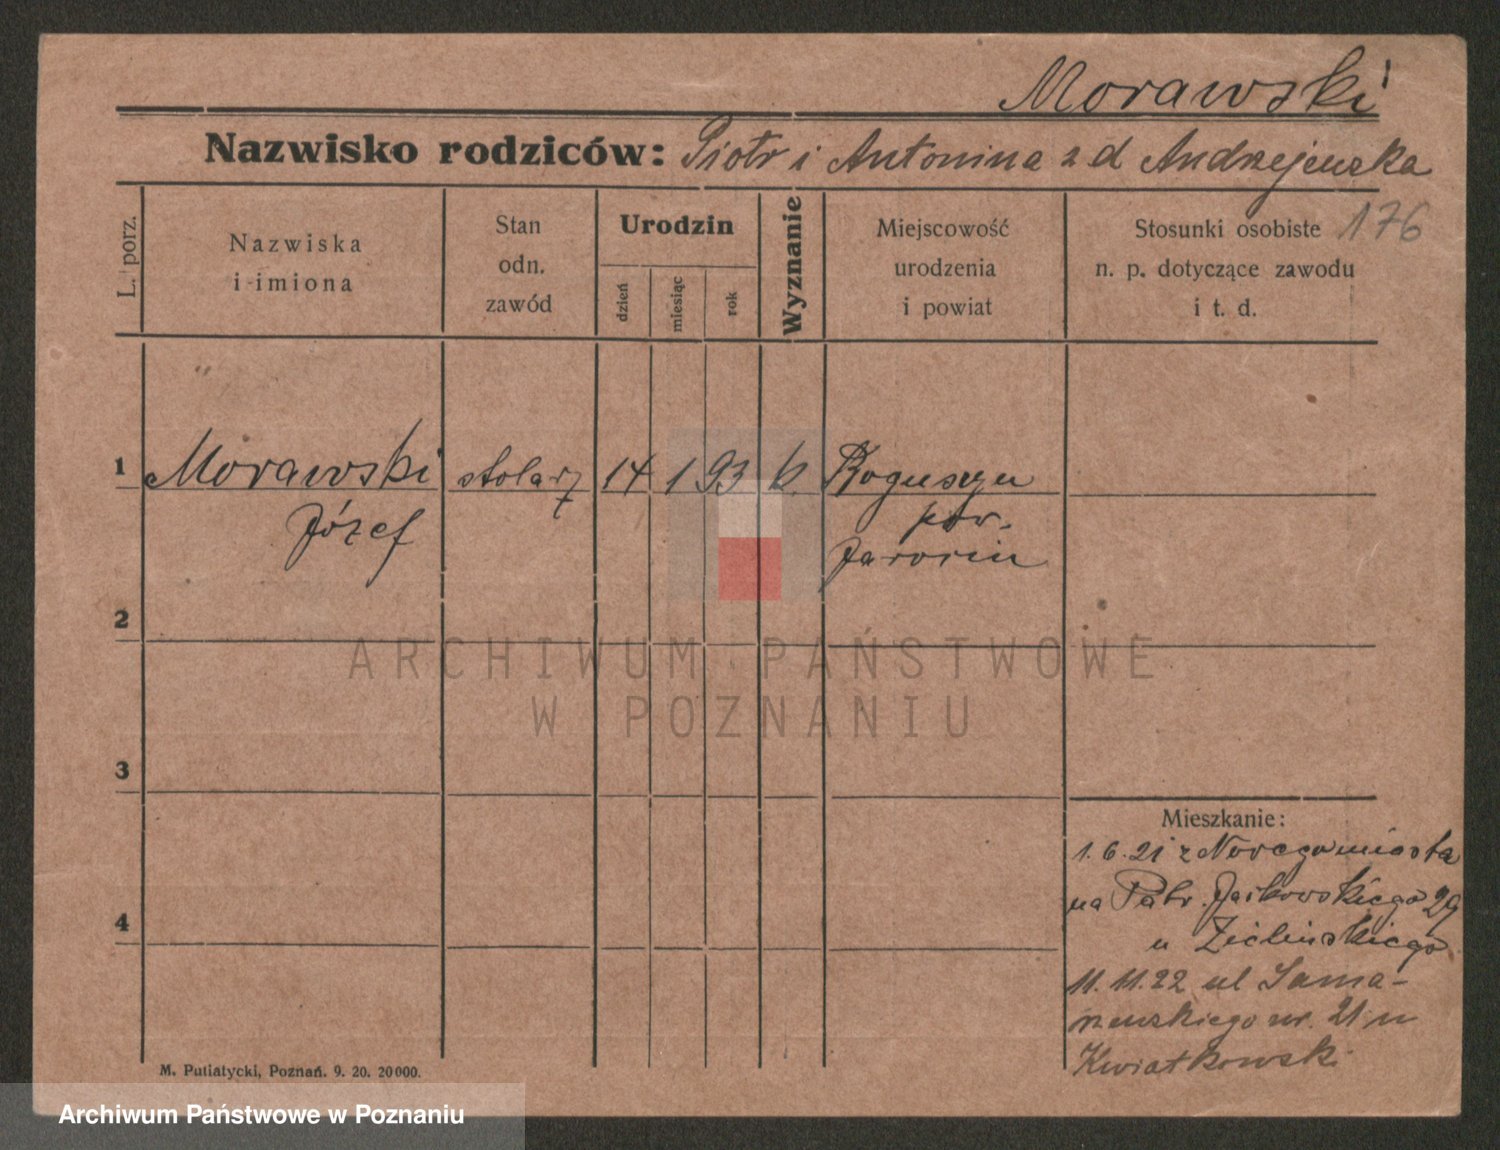 Morawski
Nazwisko rodziców: Piotr i Antonina z d Andrzejewska
176
L. porz.
Nazwiska
i imiona
Stan
odn.
zawód
Urodzin
dzień
miesiąc
rok
Wyznanie
Miejscowość
urodzenia
i powiat
Stosunki osobiste
n. p. dotyczące zawodu
i t. d.
1 Morawski stolarz 14 1 93 k. Boguszyn
Józef pow.
Jarocin
2
3
4
Mieszkanie:
1.6.21 z Nowego miasta
na Patr. Jackowskiego 29
u Zielińskiego
11.11.22 ul Sama-
rzewskiego nr. 21 u
Kwiatkowski
M. Putiatycki, Poznań. 9. 20. 20000.
ARCHIWUM PAŃSTWOWE
W POZNANIU
Archiwum Państwowe w Poznaniu